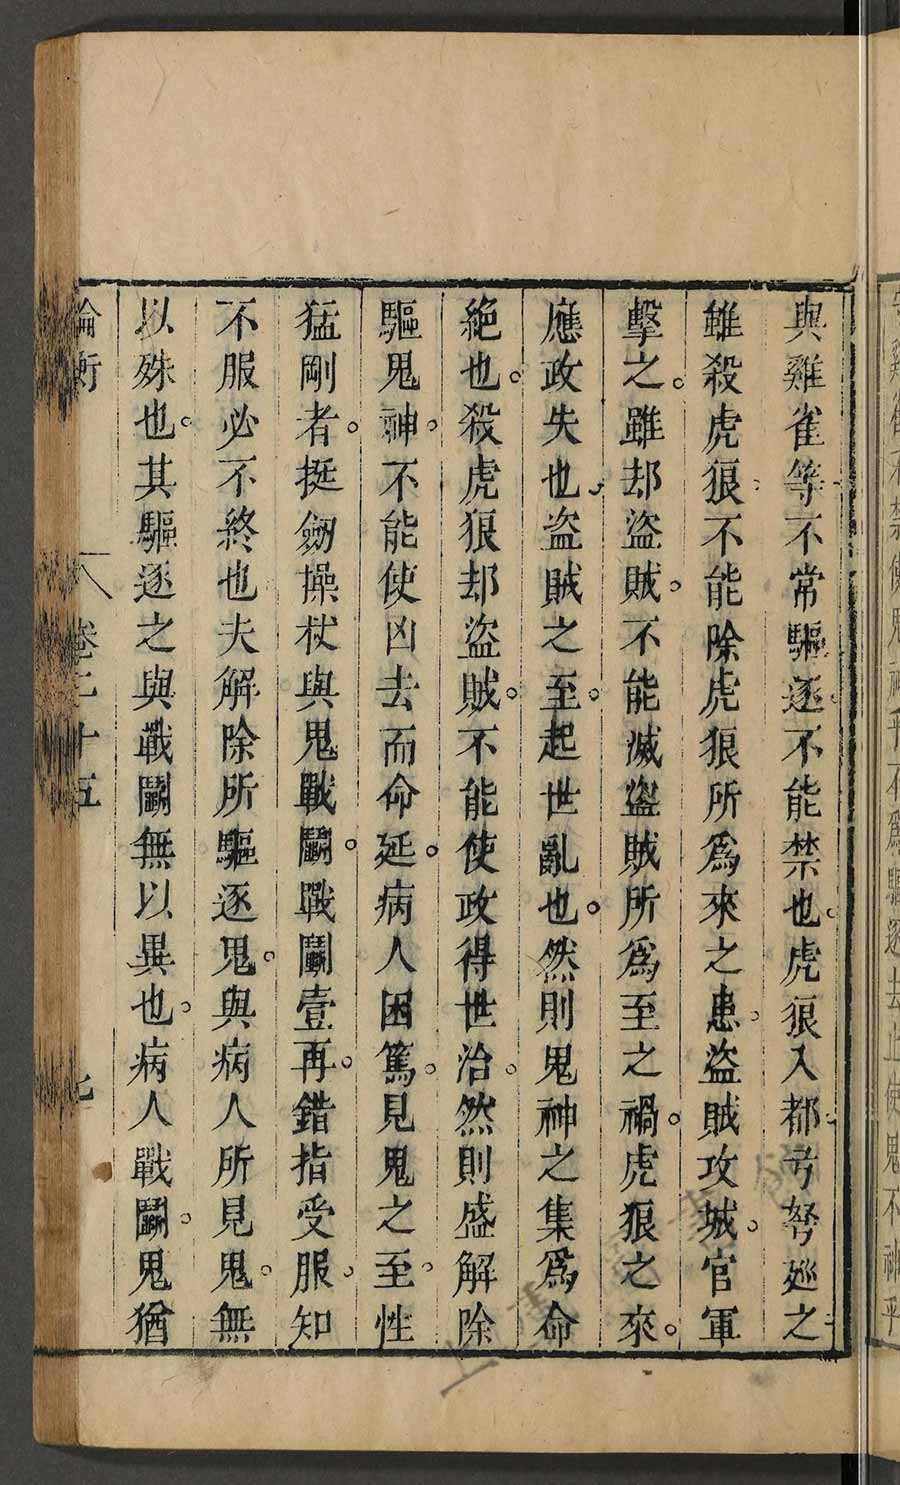 與雞雀等不常驅逐不能禁也虎狼入都弓弩廵之
雖殺虎狼不能除虎狼所爲來之患盜賊攻城官軍
擊之。雖却盜賊。不能滅盜賊所爲至之禍。虎狼之來。
應政失也。盜賊之至。起世亂也。然則鬼神之集爲命
絶也。殺虎狼却盜賊。不能使政得世治。然則盛解除
驅鬼神。不能使凶去而命延。病人困篤。見鬼之至。性
猛剛者。挺劒操杖與鬼戰鬬。戰鬬壹再。錯指受服。知
不服必不終也夫解除所驅逐鬼。與病人所見鬼。無
以殊也。其驅逐之與戰鬬無以異也。病人戰鬬。鬼猶
論衡
卷二十五
七